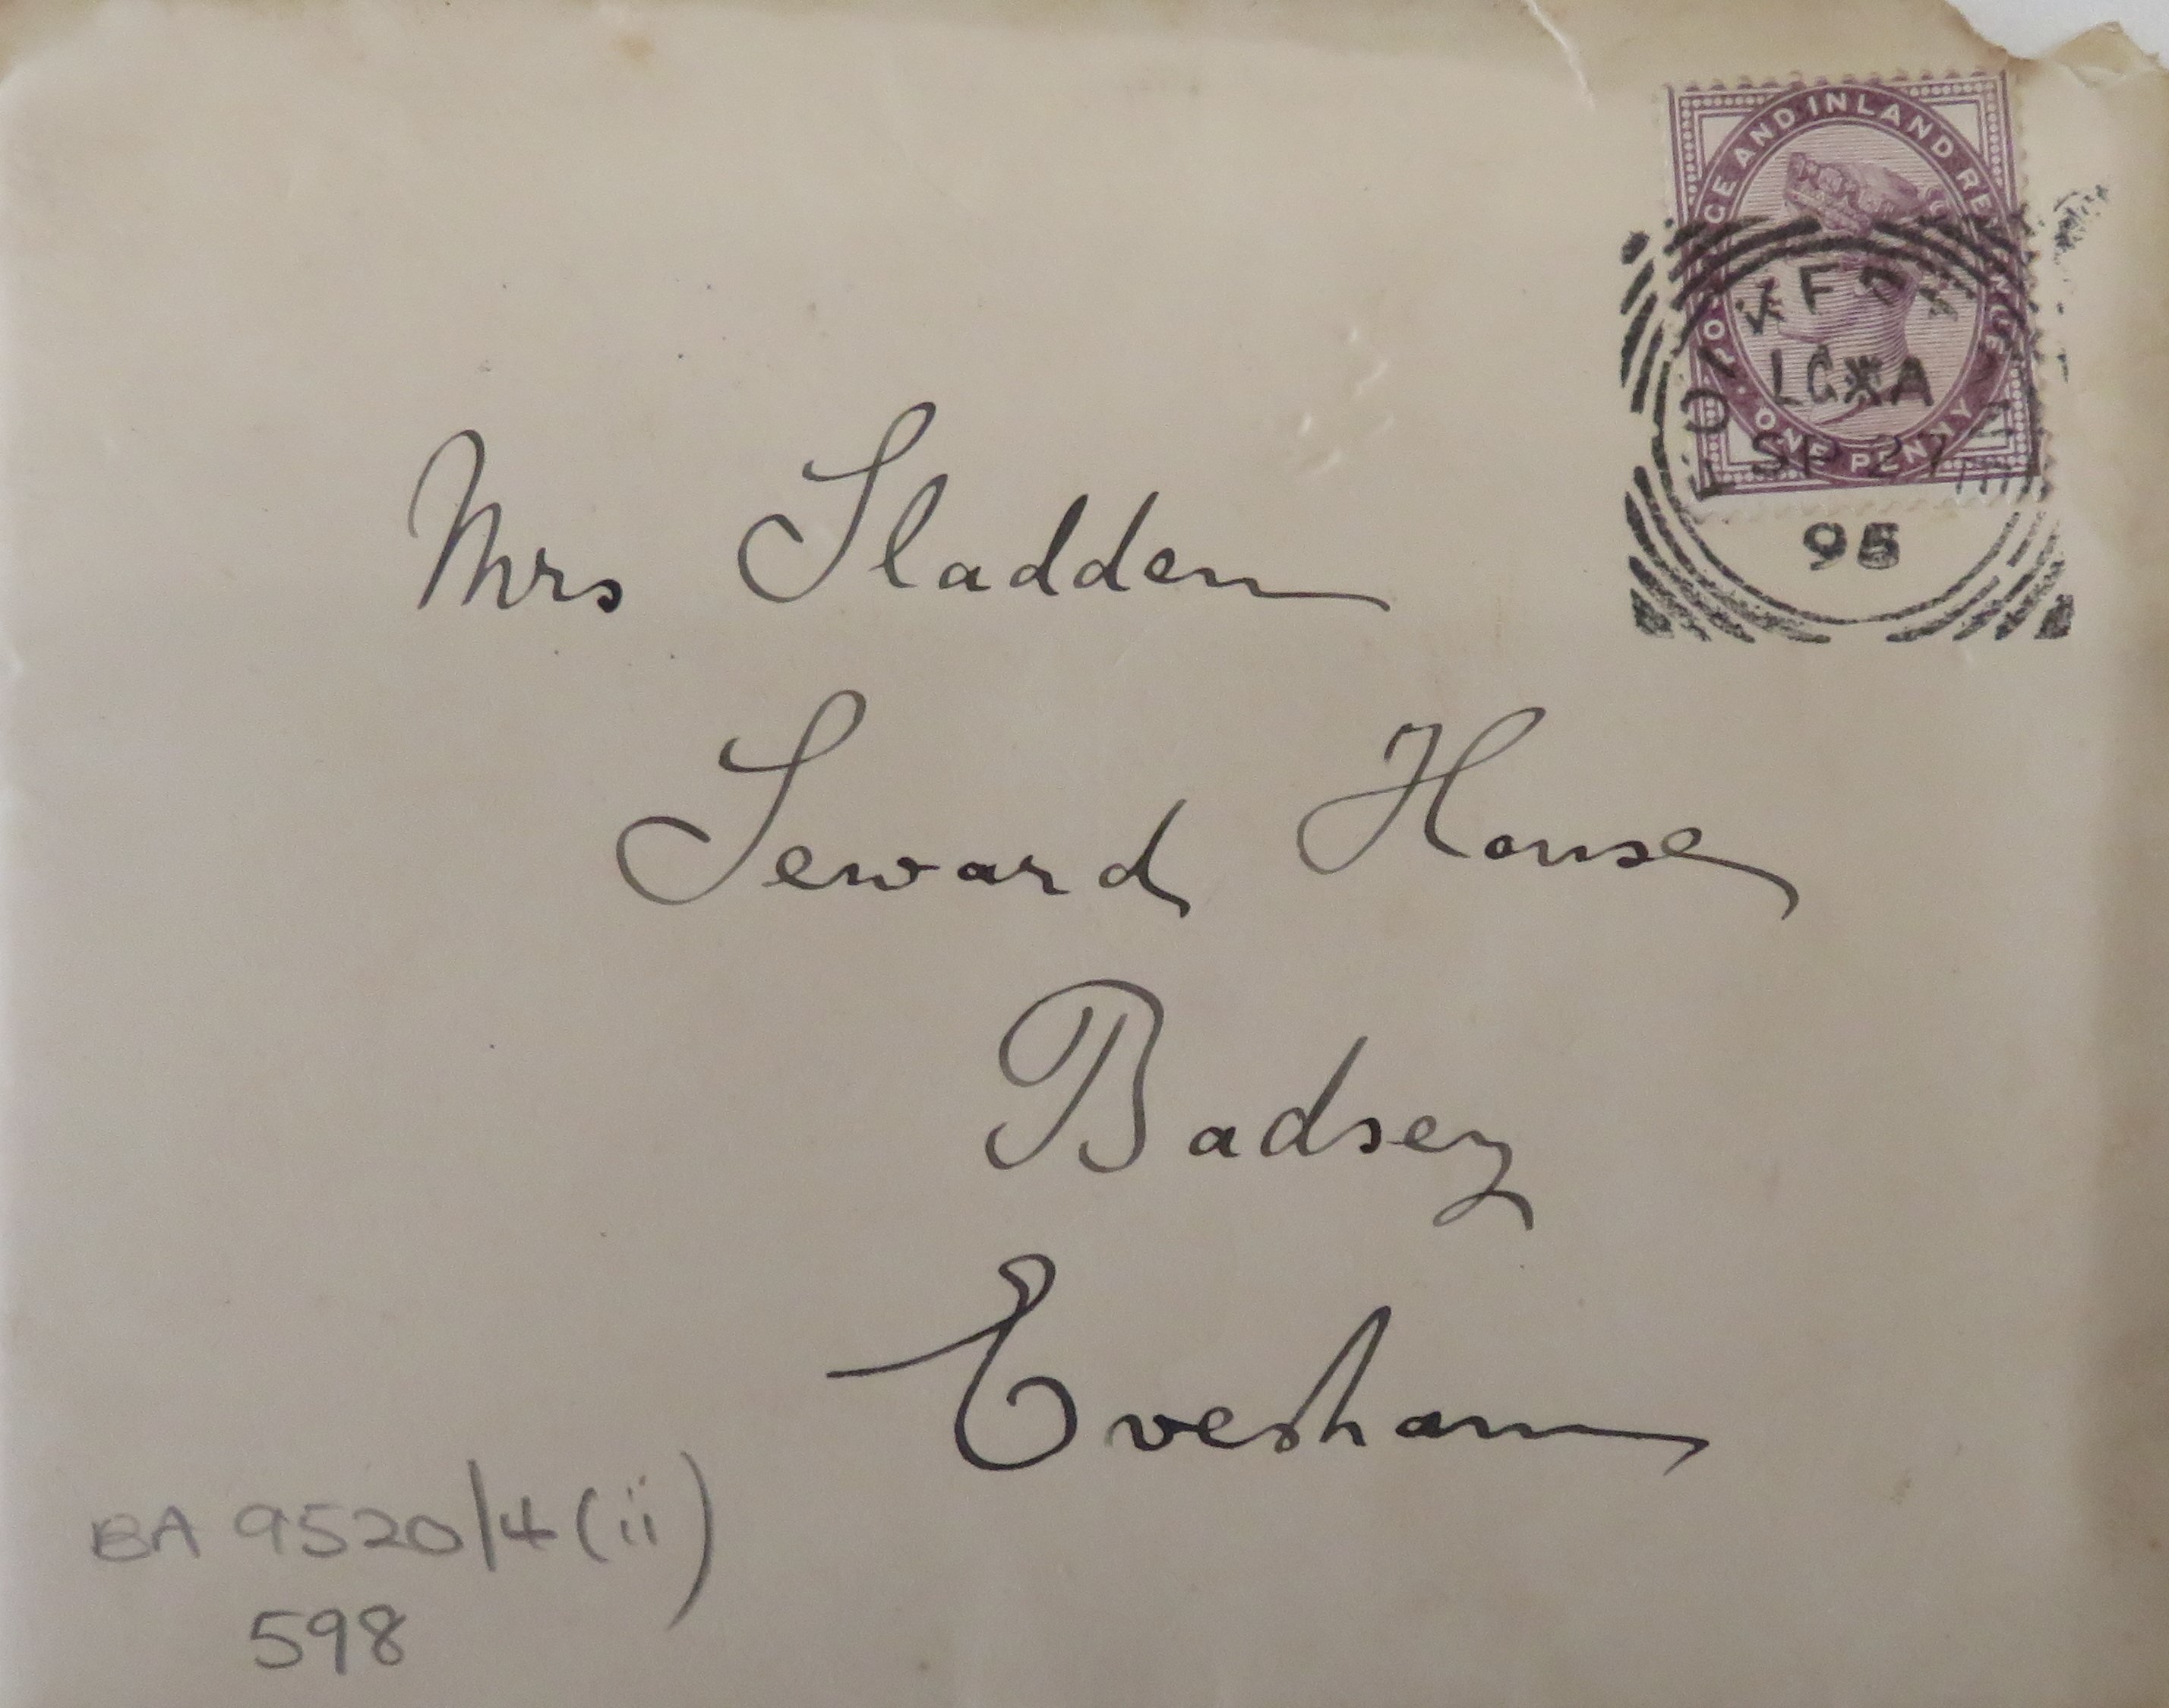 POSTAGE AND INLAND REVENUE
ONE PENNY
SP 27
95
Mrs Sladden
Seward House
Badsey
Evesham
BA 9520/4(ii)
598